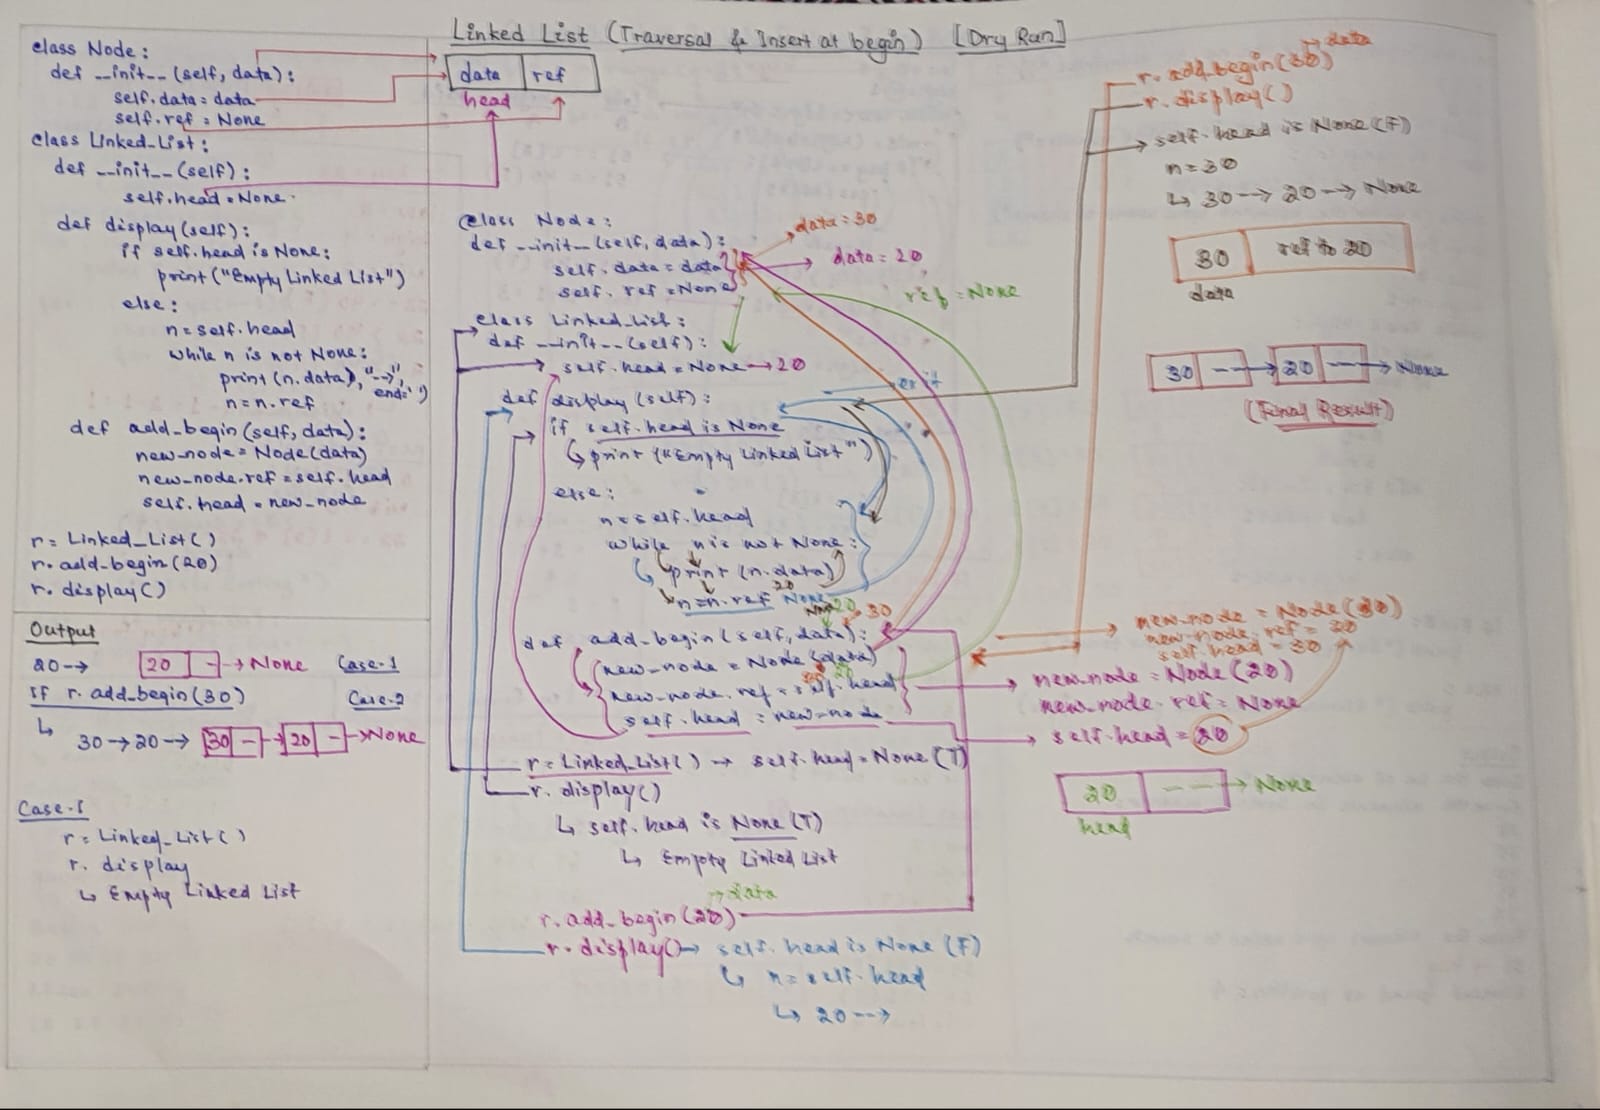 Linked List (Traversal & Insert at begin) [Dry Run]
class Node:
def __init__(self, data):
self.data = data
self.ref = None
class Linked_List:
def __init__(self):
self.head = None
def display(self):
if self.head is None:
print("Empty Linked List")
else:
n = self.head
while n is not None:
print(n.data), "-->", end=' ')
n = n.ref
def add_begin(self, data):
new_node = Node(data)
new_node.ref = self.head
self.head = new_node
r = Linked_List()
r. add_begin(20)
r. display()
Output
20 → 20 - → None Case-1
If r. add_begin(30) Case-2
↳ 30 → 20 → 30 - → 20 - → None
Case-1
r = Linked_List()
r. display
↳ Empty Linked List
data ref
head
class Node:
def __init__(self, data):
self.data = data
self.ref = None
data = 30
data = 20
ref = None
class Linked_List:
def __init__(self):
self.head = None → 20
def display(self):
exit
if self.head is None
↳ print("Empty Linked List")
else:
n = self.head
while n is not None:
print(n.data)
20
n = n.ref None
None 20 30
def add_begin(self, data):
new_node = Node(data)
30 20
new_node.ref = self.head
self.head = new_node
r = Linked_List() → self.head = None (T)
r. display()
↳ self.head is None (T)
↳ Empty Linked List
→ data
r. add_begin(20)
r. display() → self.head is None (F)
↳ n = self.head
↳ 20 -->
→ data
r. add_begin(30)
r. display()
self.head is None (F)
n = 30
↳ 30 --> 20 --> None
30 ref to 20
data
30 -- → 20 -- → None
(Final Result)
new_node = Node(30)
new_node.ref = 20
self.head = 30
new_node = Node(20)
new_node.ref = None
self.head = 20
20 -- → None
head